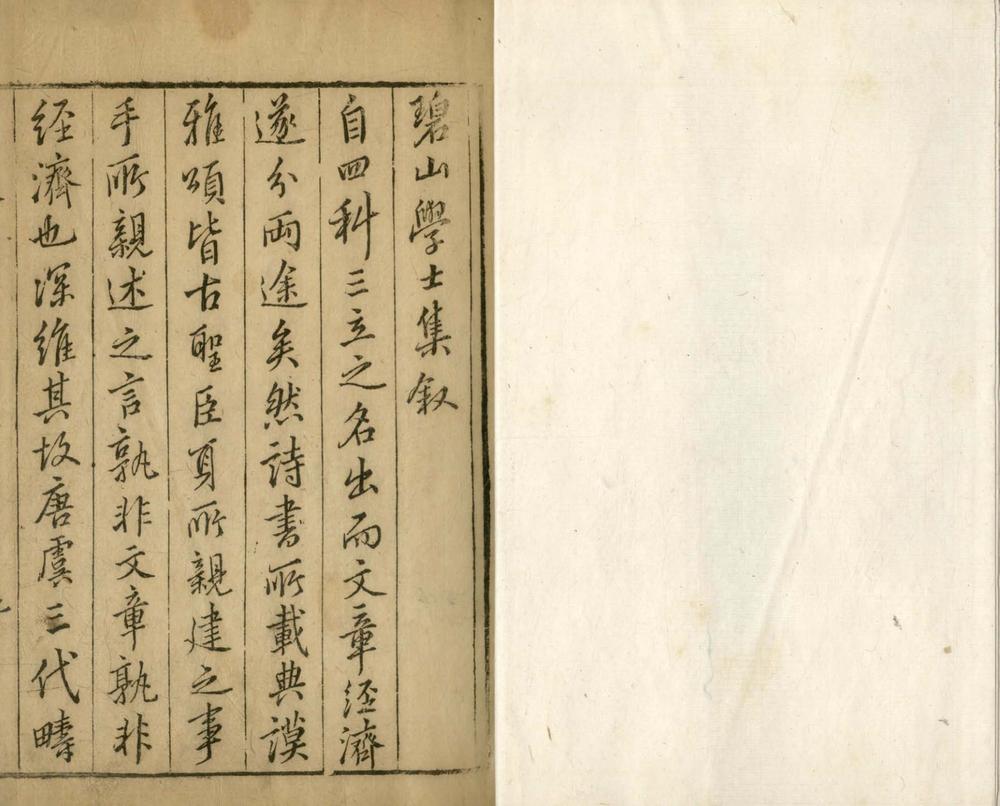 碧山學士集叙
自四科三立之名出而文章经濟
遂分両途矣然詩書所載典謨
雅頌皆古聖臣身所親建之事
手所親述之言孰非文章孰非
经濟也深維其故唐虞三代疇